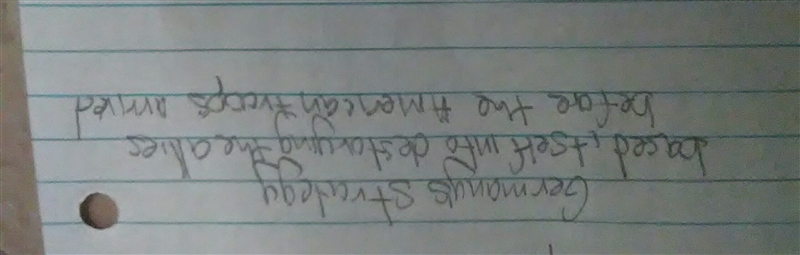 Germany's Stradegy
based itself into destorying the allies
before the American troops arrived